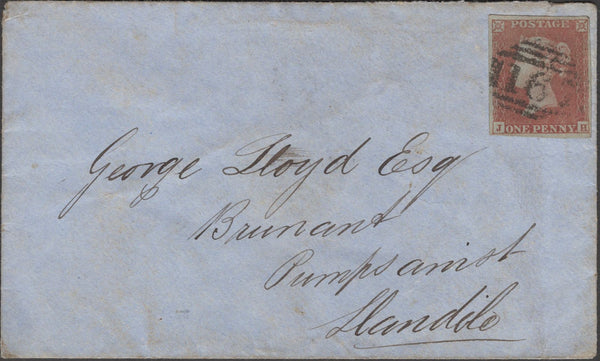 POSTAGE
116
J ONE PENNY H
George Lloyd Esq
Brunant
Pumpsanist
Llandilo